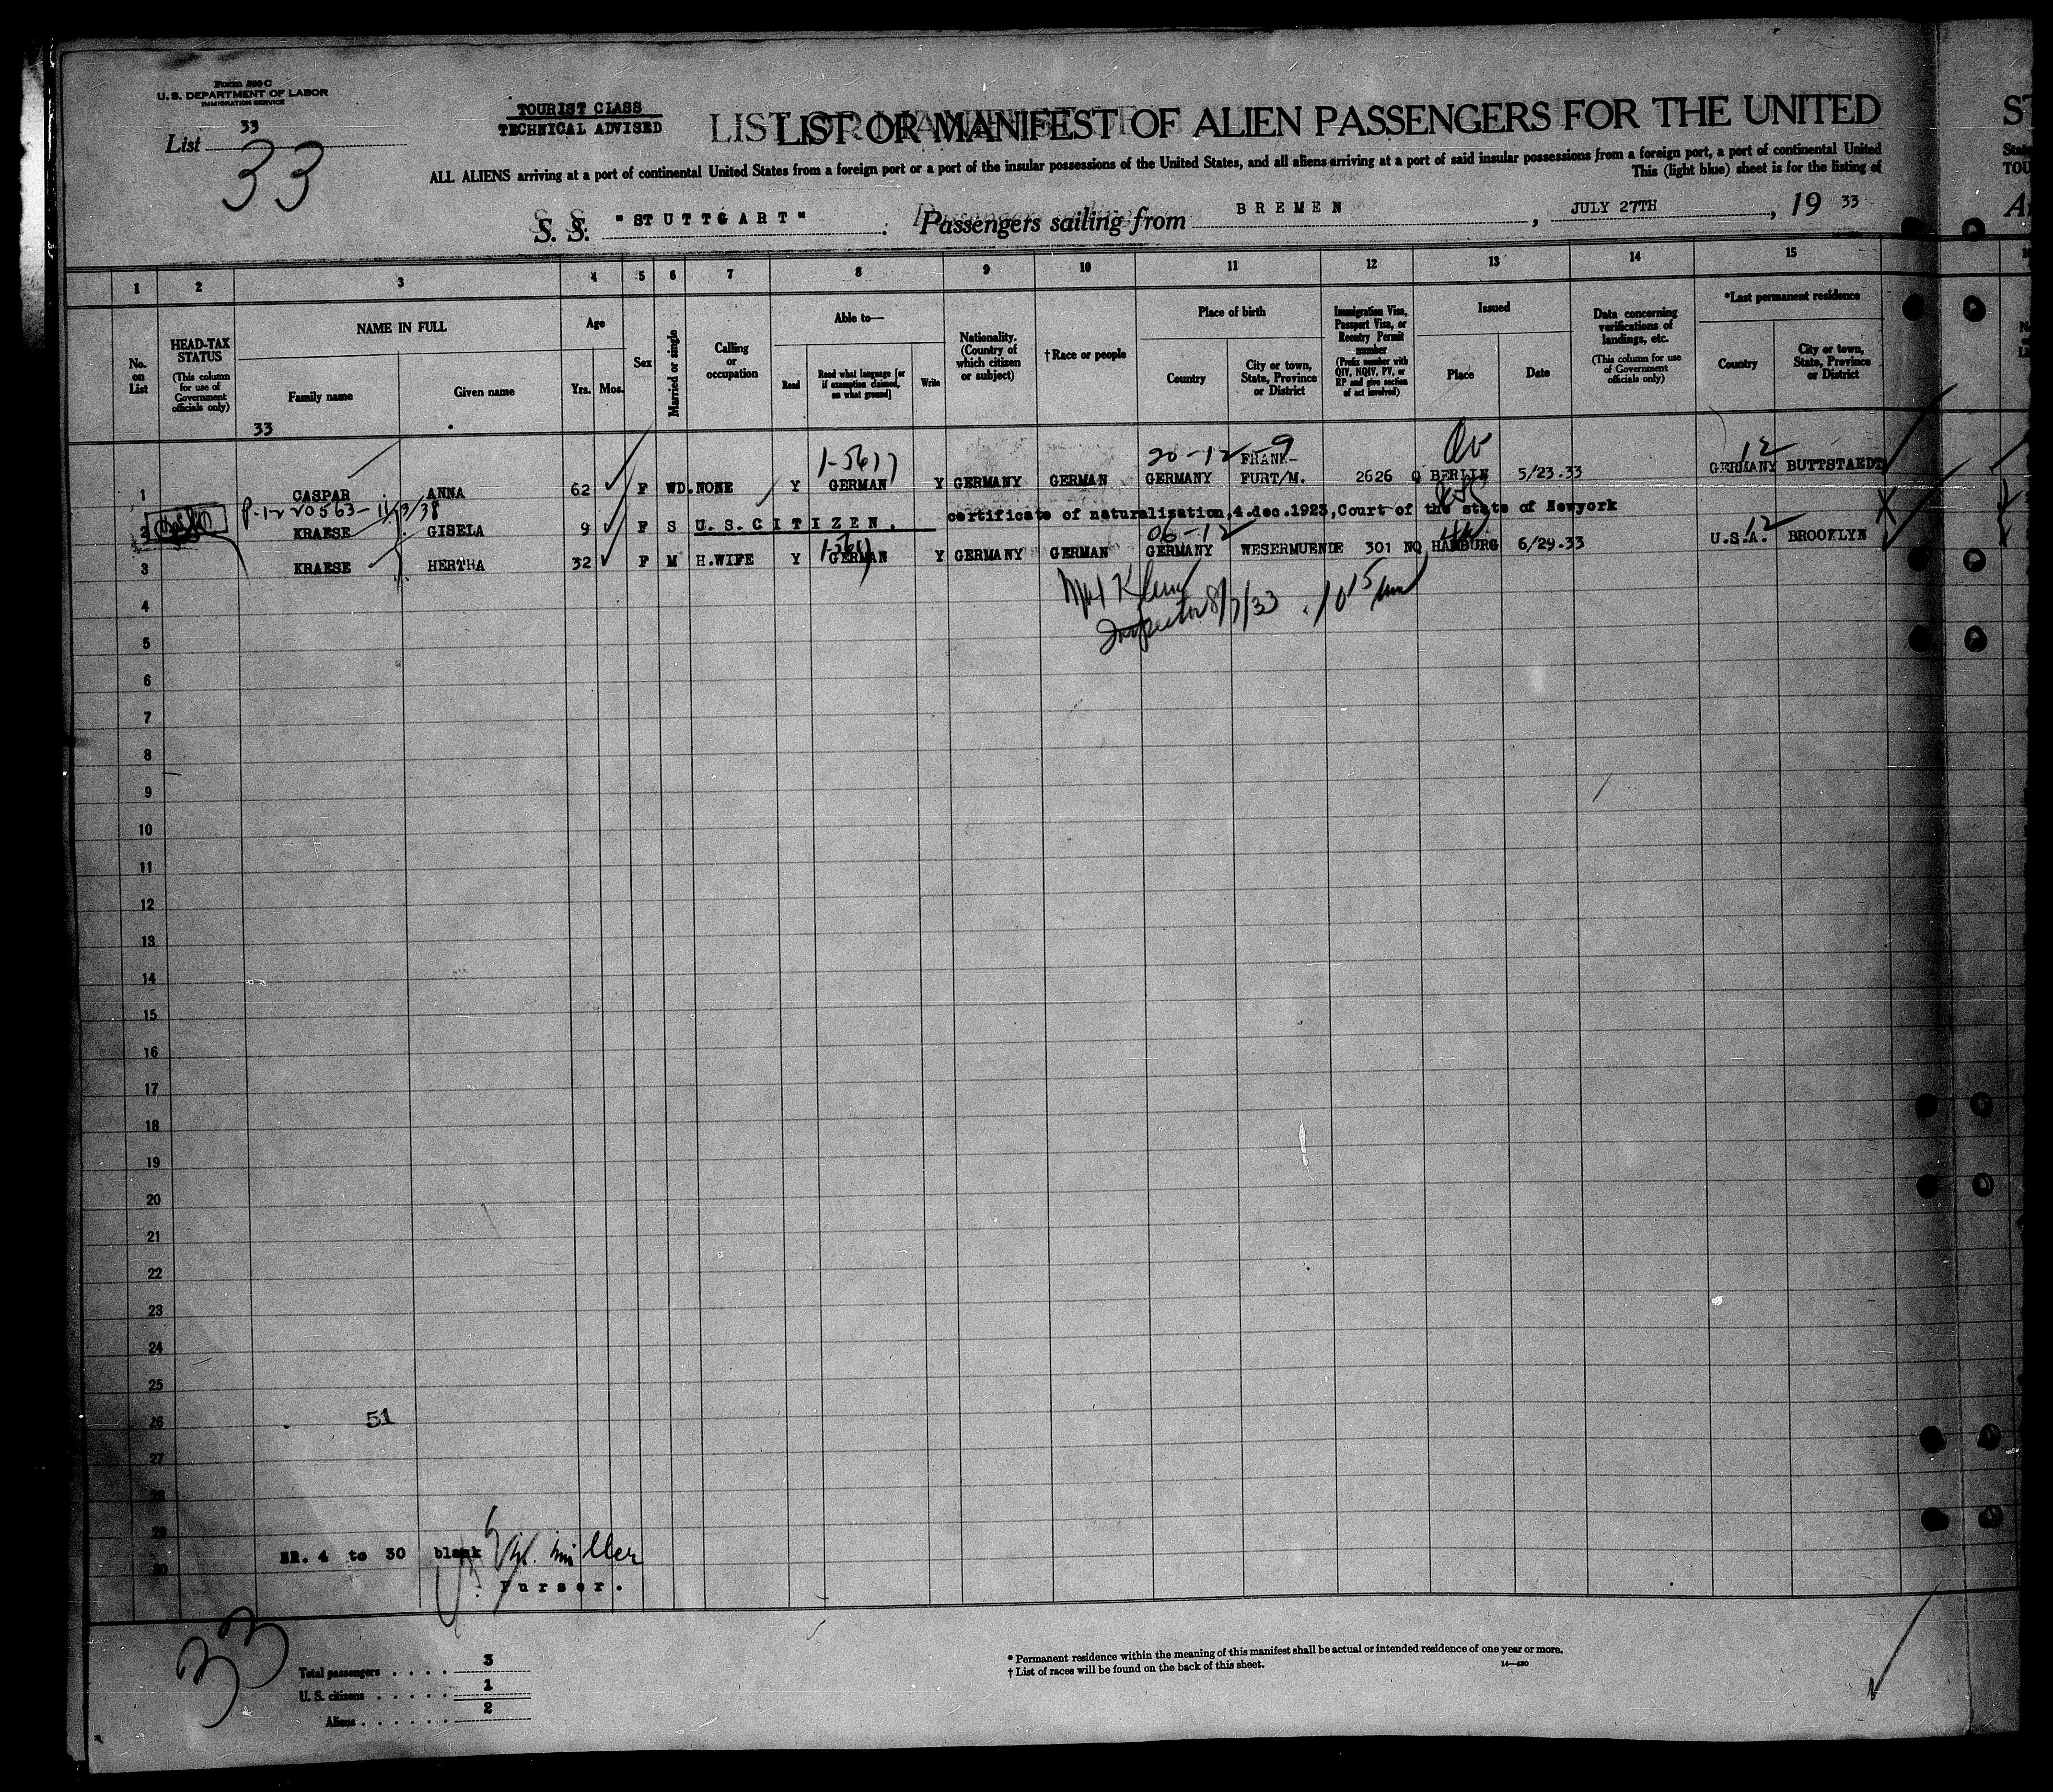 Form 500 C
U. S. DEPARTMENT OF LABOR
IMMIGRATION SERVICE
List 33
33
TOURIST CLASS
TECHNICAL ADVISED
LIST OR MANIFEST OF ALIEN PASSENGERS FOR THE UNITED
ST
ALL ALIENS arriving at a port of continental United States from a foreign port or a port of the insular possessions of the United States, and all aliens arriving at a port of said insular possessions from a foreign port, a port of continental United
State
This (light blue) sheet is for the listing of
TOU
S. S. "STUTTGART" Passengers sailing from BREMEN, JULY 27TH, 19 33
1 2 3 4 5 6 7 8 9 10 11 12 13 14 15
No. on List
HEAD-TAX STATUS
(This column for use of Government officials only)
NAME IN FULL
Family name
Given name
Age
Yrs. Mos.
Sex
Married or single
Calling or occupation
Able to—
Read
Read what language [or if exemption claimed, on what ground]
Write
Nationality. (Country of which citizen or subject)
† Race or people
Place of birth
Country
City or town, State, Province or District
Immigration Visa, Passport Visa, or Reentry Permit number
(Prefix number with QIV, NQIV, PV, or RP and give section of act involved)
Issued
Place
Date
Data concerning verifications of landings, etc.
(This column for use of Government officials only)
*Last permanent residence
Country
City or town, State, Province or District
33
20-12 9
12
1 CASPAR ANNA 62 F WD. NONE Y GERMAN Y GERMANY GERMAN GERMANY FRANK-FURT/M. 2626 Q BERLIN 5/23.33 GERMANY BUTTSTAEDT
2 KRAESE GISELA 9 F S U.S.CITIZEN. certificate of naturalization,4.dec.1923,Court of the state of Newyork
06-12
12
3 KRAESE HERTHA 32 F M H.WIFE Y GERMAN Y GERMANY GERMAN GERMANY WESERMUENDE 301 NQ HAMBURG 6/29.33 U.S.A. BROOKLYN
Inspector 8/7/33
4
5
6
7
8
9
10
11
12
13
14
15
16
17
18
19
20
21
22
23
24
25
26 51
27
28
29
NR. 4 to 30 blank
30
Purser.
33
Total passengers . . . . 3
U. S. citizens . . . . . 1
Aliens . . . . . . 2
* Permanent residence within the meaning of this manifest shall be actual or intended residence of one year or more.
† List of races will be found on the back of this sheet.
14—480